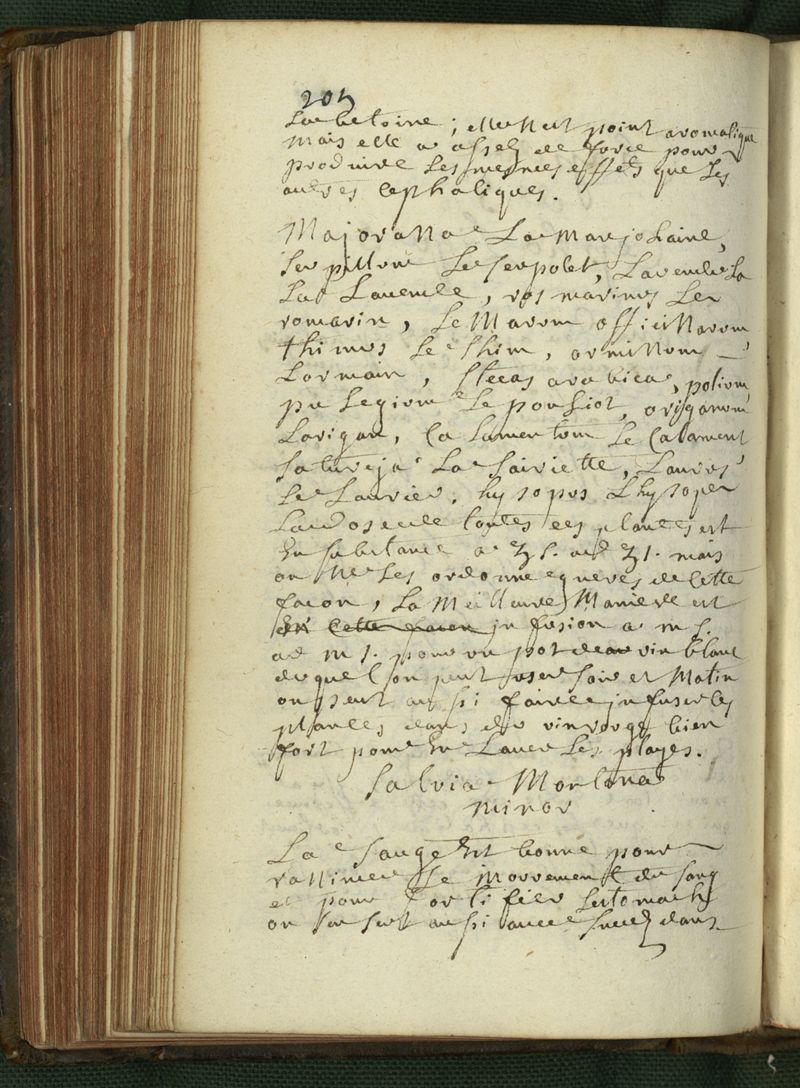 205
La betoine ; elle n'est point aromatique
mais elle a assez de force pour
produire les mesmes effets que les
autres cephaliques.
Majorana La Marjolaine,
Serpillum Le serpolet, Lavendula
La Lavende, ros marinus Le
romarin, Le Marum officinarum
thimus Le Thim, orminum
Lormain, stecas arabica, polium,
pulegium Le pouliot, origanum
Lorigan, Calamentum Le Calament
Satureja La Sariette, Laurus
Le Laurier, hysopus Lhysope
La dose de toutes ces plantes est
En substance a ʒ s. ad ʒ 1. mais
on Ne Les ordonne gueres de Cette
facon, La Meilleure Maniere est
En Cette facon in fusion a m s.
ad m 1. pour un pot de vin blanc
duquel on peut user soir et Matin
on peut aussi faire infuser les
plantes dans du vin rouge bien
fort pour En Laver Les playes.
Salvia Montana
minor
La Sauge Est bonne pour
ranimer Le mouvement du sang
et pour fortifier Lestomach
on sen sert aussi avec succez dans